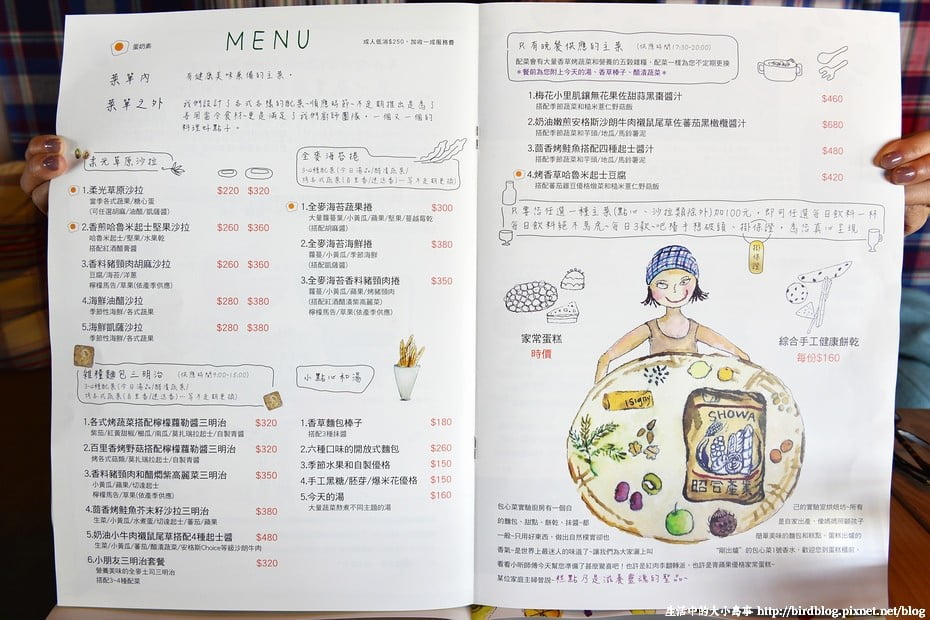 蛋奶素
MENU
成人低消$250,加收一成服務費
葉單內
有健康美味兼備的主菜。
葉單之外
我們設計了各式各樣的配菜~順應時節~不定期推出是為了
料理好點子。
柔光草原沙拉
1.柔光草原沙拉 $220 $320
當季各式蔬果/糖心蛋
(可任選胡麻/油醋/凱薩醬)
2.香煎哈魯米起士堅果沙拉 $260 $360
哈魯米起士/堅果/水果乾
搭配紅酒醋膏醬
3.香料豬頸肉胡麻沙拉 $260 $360
豆腐/海苔/洋蔥
檸檬馬告/草果(依產季供應)
4.海鮮油醋沙拉 $280 $380
季節性海鮮/各式蔬果
5.海鮮凱薩沙拉 $280 $380
季節性海鮮/各式蔬果
全麥海苔捲
3-4種配菜(今日湯品/醋漬蔬菜/
1.全麥海苔蔬果捲 $300
大量蘿蔓葉/小黃瓜/蘋果/堅果/蔓越莓乾
(搭配胡麻醬)
2.全麥海苔海鮮捲 $380
蘿蔓/小黃瓜/季節海鮮
(搭配凱薩醬)
3.全麥海苔香料豬頸肉捲 $350
蘿蔓/小黃瓜/蘋果/烤豬頸肉
(搭配紅酒醋漬紫高麗菜)
檸檬馬告/草果(依產季供應)
雜糧麵包三明治 (供應時間9:00-15:00)
3-4種配菜(今日湯品/醋漬蔬菜/
1.各式烤蔬菜搭配檸檬蘿勒醬三明治 $320
紫茄/紅黃甜椒/櫛瓜/南瓜/莫扎瑞拉起士/自製青醬
2.百里香烤野菇搭配檸檬蘿勒醬三明治 $320
烤各式菇類/莫扎瑞拉起士/自製青醬
3.香料豬頸肉和醋燜紫高麗菜三明治 $350
小黃瓜/蘋果/切達起士
檸檬馬告/草果(依產季供應)
4.茴香烤鮭魚芥末籽沙拉三明治 $380
生菜/小黃瓜/水煮蛋/切達起士/蕃茄/蘋果
5.奶油小牛肉襯鼠尾草搭配4種起士醬 $480
生菜/小黃瓜/蕃茄/醋漬蔬菜/安格斯Choice等級沙朗牛肉
6.小朋友三明治套餐 $320
營養美味的全麥土司三明治
搭配3~4種配菜
小點心和湯
1.香草麵包棒子 $180
搭配3種抹醬
2.六種口味的開放式麵包 $260
3.季節水果和自製優格 $150
4.手工黑糖/胚芽/爆米花優格 $150
5.今天的湯 $160
大量蔬菜熬煮不同主題的湯
只有晚餐供應的主菜 (供應時間17:30-20:00)
配菜會有大量香草烤蔬菜和營養的五穀雜糧,配菜一樣為您不定期更換
*餐前為您附上今天的湯、香草棒子、醋漬蔬菜*
1.梅花小里肌鑲無花果佐甜蒜黑棗醬汁 $460
搭配季節蔬菜和糙米薏仁野菇飯
2.奶油嫩煎安格斯沙朗牛肉襯鼠尾草佐蕃茄黑橄欖醬汁 $680
搭配季節蔬菜和芋頭/地瓜/馬鈴薯泥
3.茴香烤鮭魚搭配四種起士醬汁 $480
搭配季節蔬菜和芋頭/地瓜/馬鈴薯泥
4.烤香草哈魯米起士豆腐 $420
搭配蕃茄雞豆優格燉菜和糙米薏仁野菇飯
只要您任選一種主菜(點心、沙拉類除外)加100元,即可任選每日飲料一杯
每日飲料絕不馬虎~每日3款~吧檯手想破頭、掛保證,為您真心呈現
掛保證
家常蛋糕
時價
綜合手工健康餅乾
每份$160
isigny
SHOWA
昭合產業
包心菜實驗廚房有一個自
的麵包、甜點、餅乾、抹醬~都
一般~只用好東西,做出自然樸實卻也
香氣~是世界上最迷人的味道了~讓我們為大家灑上叫
看看小廚師傅今天幫您準備了甚麼驚喜吧!也許是紅肉李翻轉派,也許是青蘋果優格家常蛋糕~
某位家庭主婦曾說~糕點乃是滋養靈魂的聖品~
己的實驗室烘焙坊~所有
是自家出產、像媽媽照顧孩子
簡單美味的麵包和糕點。蛋糕出爐的
"剛出爐" 的包心菜1號香水,歡迎您到蛋糕櫃前,
生活中的大小鳥事 http://birdblog.pixnet.net/blog